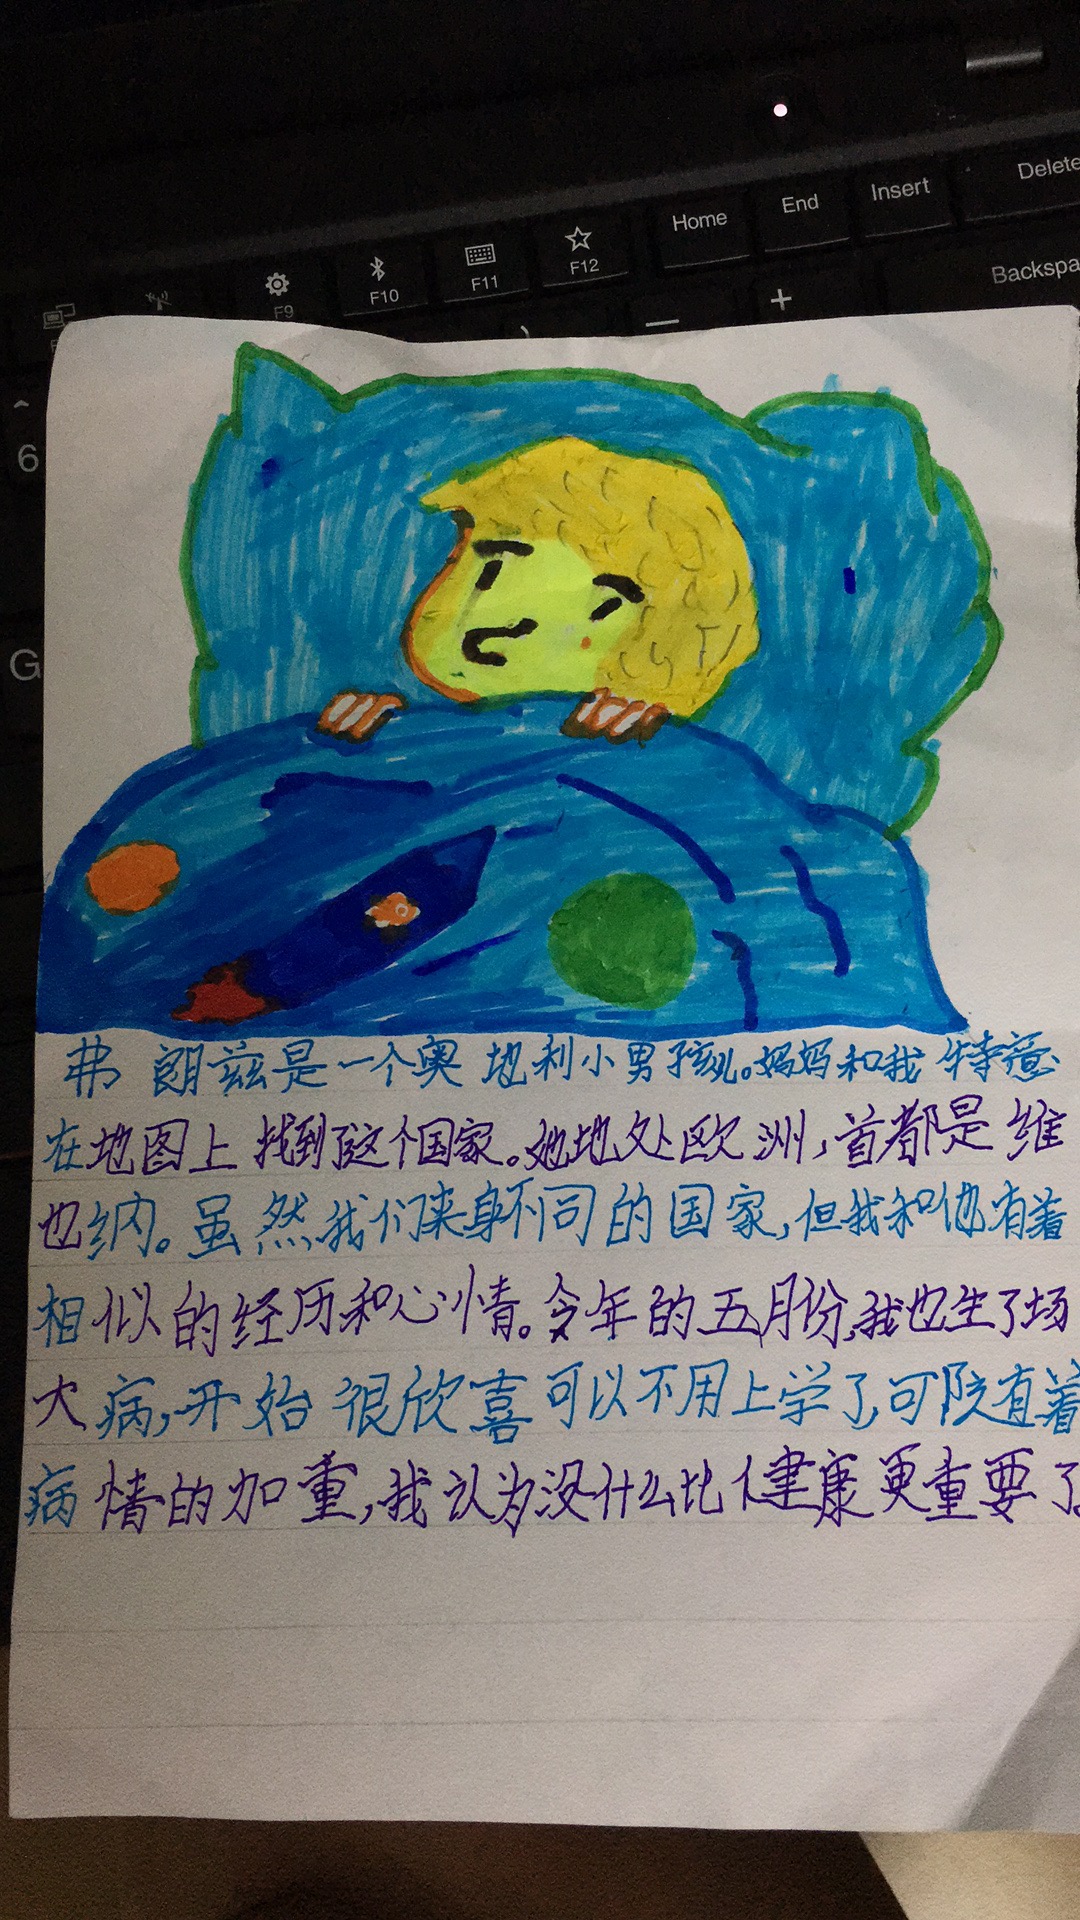 Delete
Insert
End
Home
F12
F11
F10
F9
Backspa
+
—
6
G
弗朗兹是一个奥地利小男孩儿。妈妈和我特意
在地图上找到了这个国家。她地处欧洲,首都是维
也纳。虽然我们来自不同的国家,但我和他有着
相似的经历和心情。今年的五月份,我也生了场
大病,开始很欣喜可以不用上学了,可随有着
病情的加重,我认为没什么比健康更重要了。